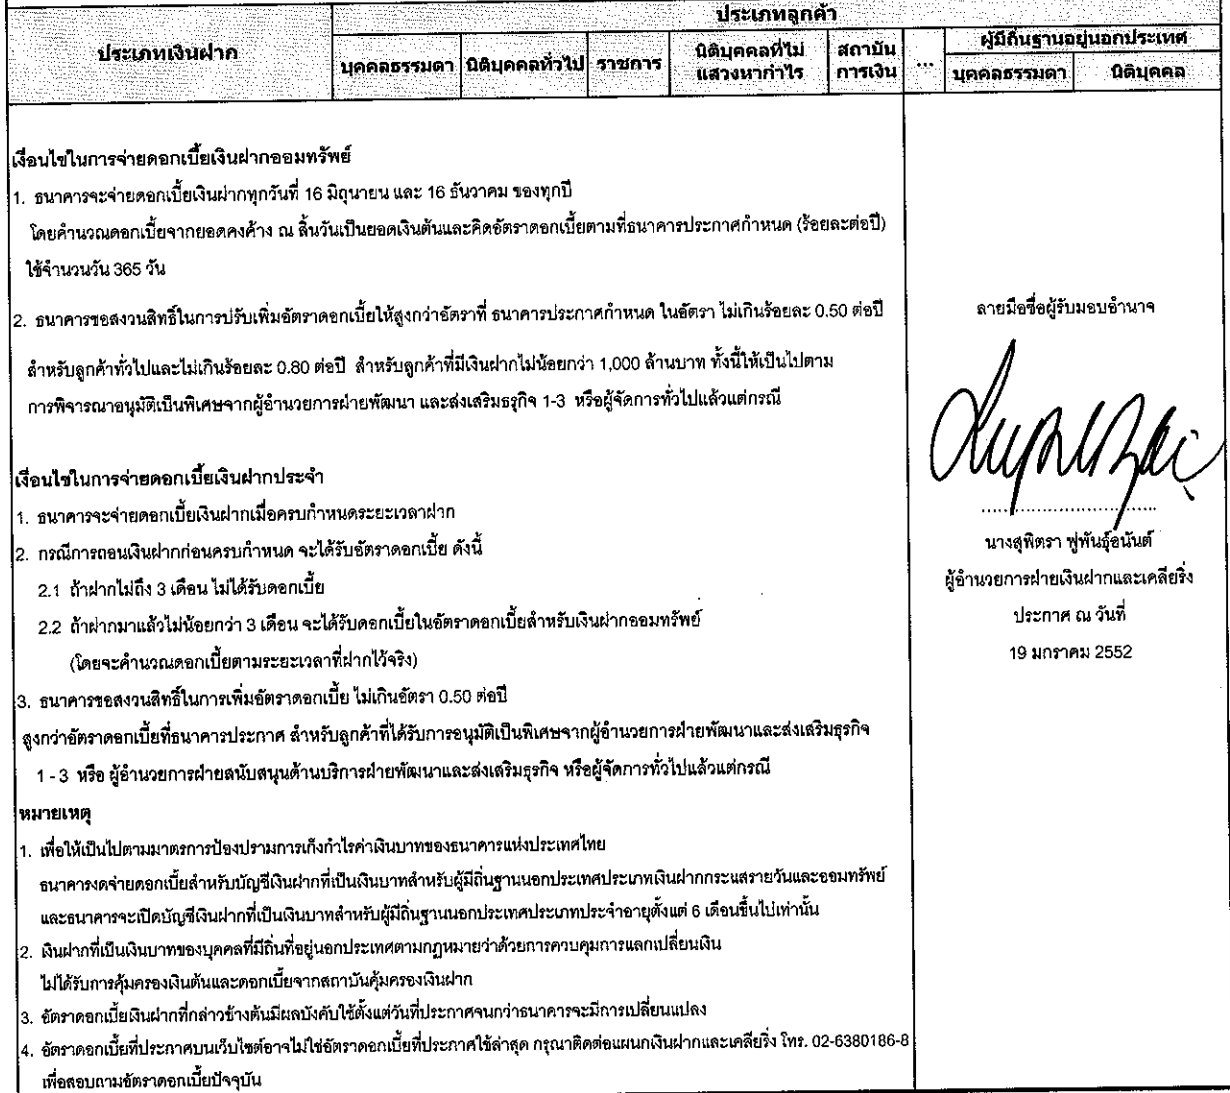 ประเภทลูกค้า
ประเภทเงินฝาก
บุคคลธรรมดา นิติบุคคลทั่วไป ราชการ นิติบุคคลที่ไม่แสวงหากำไร สถาบันการเงิน ... ผู้มีถิ่นฐานอยู่นอกประเทศ
บุคคลธรรมดา นิติบุคคล
เงื่อนไขในการจ่ายดอกเบี้ยเงินฝากออมทรัพย์
1. ธนาคารจะจ่ายดอกเบี้ยเงินฝากทุกวันที่ 16 มิถุนายน และ 16 ธันวาคม ของทุกปี
โดยคำนวณดอกเบี้ยจากยอดคงค้าง ณ สิ้นวันเป็นยอดเงินต้นและคิดอัตราดอกเบี้ยตามที่ธนาคารประกาศกำหนด (ร้อยละต่อปี)
ใช้จำนวนวัน 365 วัน
2. ธนาคารขอสงวนสิทธิ์ในการปรับเพิ่มอัตราดอกเบี้ยให้สูงกว่าอัตราที่ ธนาคารประกาศกำหนด ในอัตรา ไม่เกินร้อยละ 0.50 ต่อปี
สำหรับลูกค้าทั่วไปและไม่เกินร้อยละ 0.80 ต่อปี สำหรับลูกค้าที่มีเงินฝากไม่น้อยกว่า 1,000 ล้านบาท ทั้งนี้ให้เป็นไปตาม
การพิจารณาอนุมัติเป็นพิเศษจากผู้อำนวยการฝ่ายพัฒนา และส่งเสริมธรุกิจ 1-3 หรือผู้จัดการทั่วไปแล้วแต่กรณี
เงื่อนไขในการจ่ายดอกเบี้ยเงินฝากประจำ
1. ธนาคารจะจ่ายดอกเบี้ยเงินฝากเมื่อครบกำหนดระยะเวลาฝาก
2. กรณีการถอนเงินฝากก่อนครบกำหนด จะได้รับอัตราดอกเบี้ย ดังนี้
2.1 ถ้าฝากไม่ถึง 3 เดือน ไม่ได้รับดอกเบี้ย
2.2 ถ้าฝากมาแล้วไม่น้อยกว่า 3 เดือน จะได้รับดอกเบี้ยในอัตราดอกเบี้ยสำหรับเงินฝากออมทรัพย์
(โดยจะคำนวณดอกเบี้ยตามระยะเวลาที่ฝากไว้จริง)
3. ธนาคารขอสงวนสิทธิ์ในการเพิ่มอัตราดอกเบี้ย ไม่เกินอัตรา 0.50 ต่อปี
สูงกว่าอัตราดอกเบี้ยที่ธนาคารประกาศ สำหรับลูกค้าที่ได้รับการอนุมัติเป็นพิเศษจากผู้อำนวยการฝ่ายพัฒนาและส่งเสริมธุรกิจ
1 - 3 หรือ ผู้อำนวยการฝ่ายสนับสนุนด้านบริการฝ่ายพัฒนาและส่งเสริมธุรกิจ หรือผู้จัดการทั่วไปแล้วแต่กรณี
หมายเหตุ
1. เพื่อให้เป็นไปตามมาตรการป้องปรามการเก็งกำไรค่าเงินบาทของธนาคารแห่งประเทศไทย
ธนาคารงดจ่ายดอกเบี้ยสำหรับบัญชีเงินฝากที่เป็นเงินบาทสำหรับผู้มีถิ่นฐานนอกประเทศประเภทเงินฝากกระแสรายวันและออมทรัพย์
และธนาคารจะเปิดบัญชีเงินฝากที่เป็นเงินบาทสำหรับผู้มีถิ่นฐานนอกประเทศประเภทประจำอายุตั้งแต่ 6 เดือนขึ้นไปเท่านั้น
2. เงินฝากที่เป็นเงินบาทของบุคคลที่มีถิ่นที่อยู่นอกประเทศตามกฎหมายว่าด้วยการควบคุมการแลกเปลี่ยนเงิน
ไม่ได้รับการคุ้มครองเงินต้นและดอกเบี้ยจากสถาบันคุ้มครองเงินฝาก
3. อัตราดอกเบี้ยเงินฝากที่กล่าวข้างต้นมีผลบังคับใช้ตั้งแต่วันที่ประกาศจนกว่าธนาคารจะมีการเปลี่ยนแปลง
4. อัตราดอกเบี้ยที่ประกาศบนเว็บไซต์อาจไม่ใช่อัตราดอกเบี้ยที่ประกาศใช้ล่าสุด กรุณาติดต่อแผนกเงินฝากและเคลียริ่ง โทร. 02-6380186-8
เพื่อสอบถามอัตราดอกเบี้ยปัจจุบัน
ลายมือชื่อผู้รับมอบอำนาจ
นางสุพิตรา ฟูพันธุ์อนันต์
ผู้อำนวยการฝ่ายเงินฝากและเคลียริ่ง
ประกาศ ณ วันที่
19 มกราคม 2552